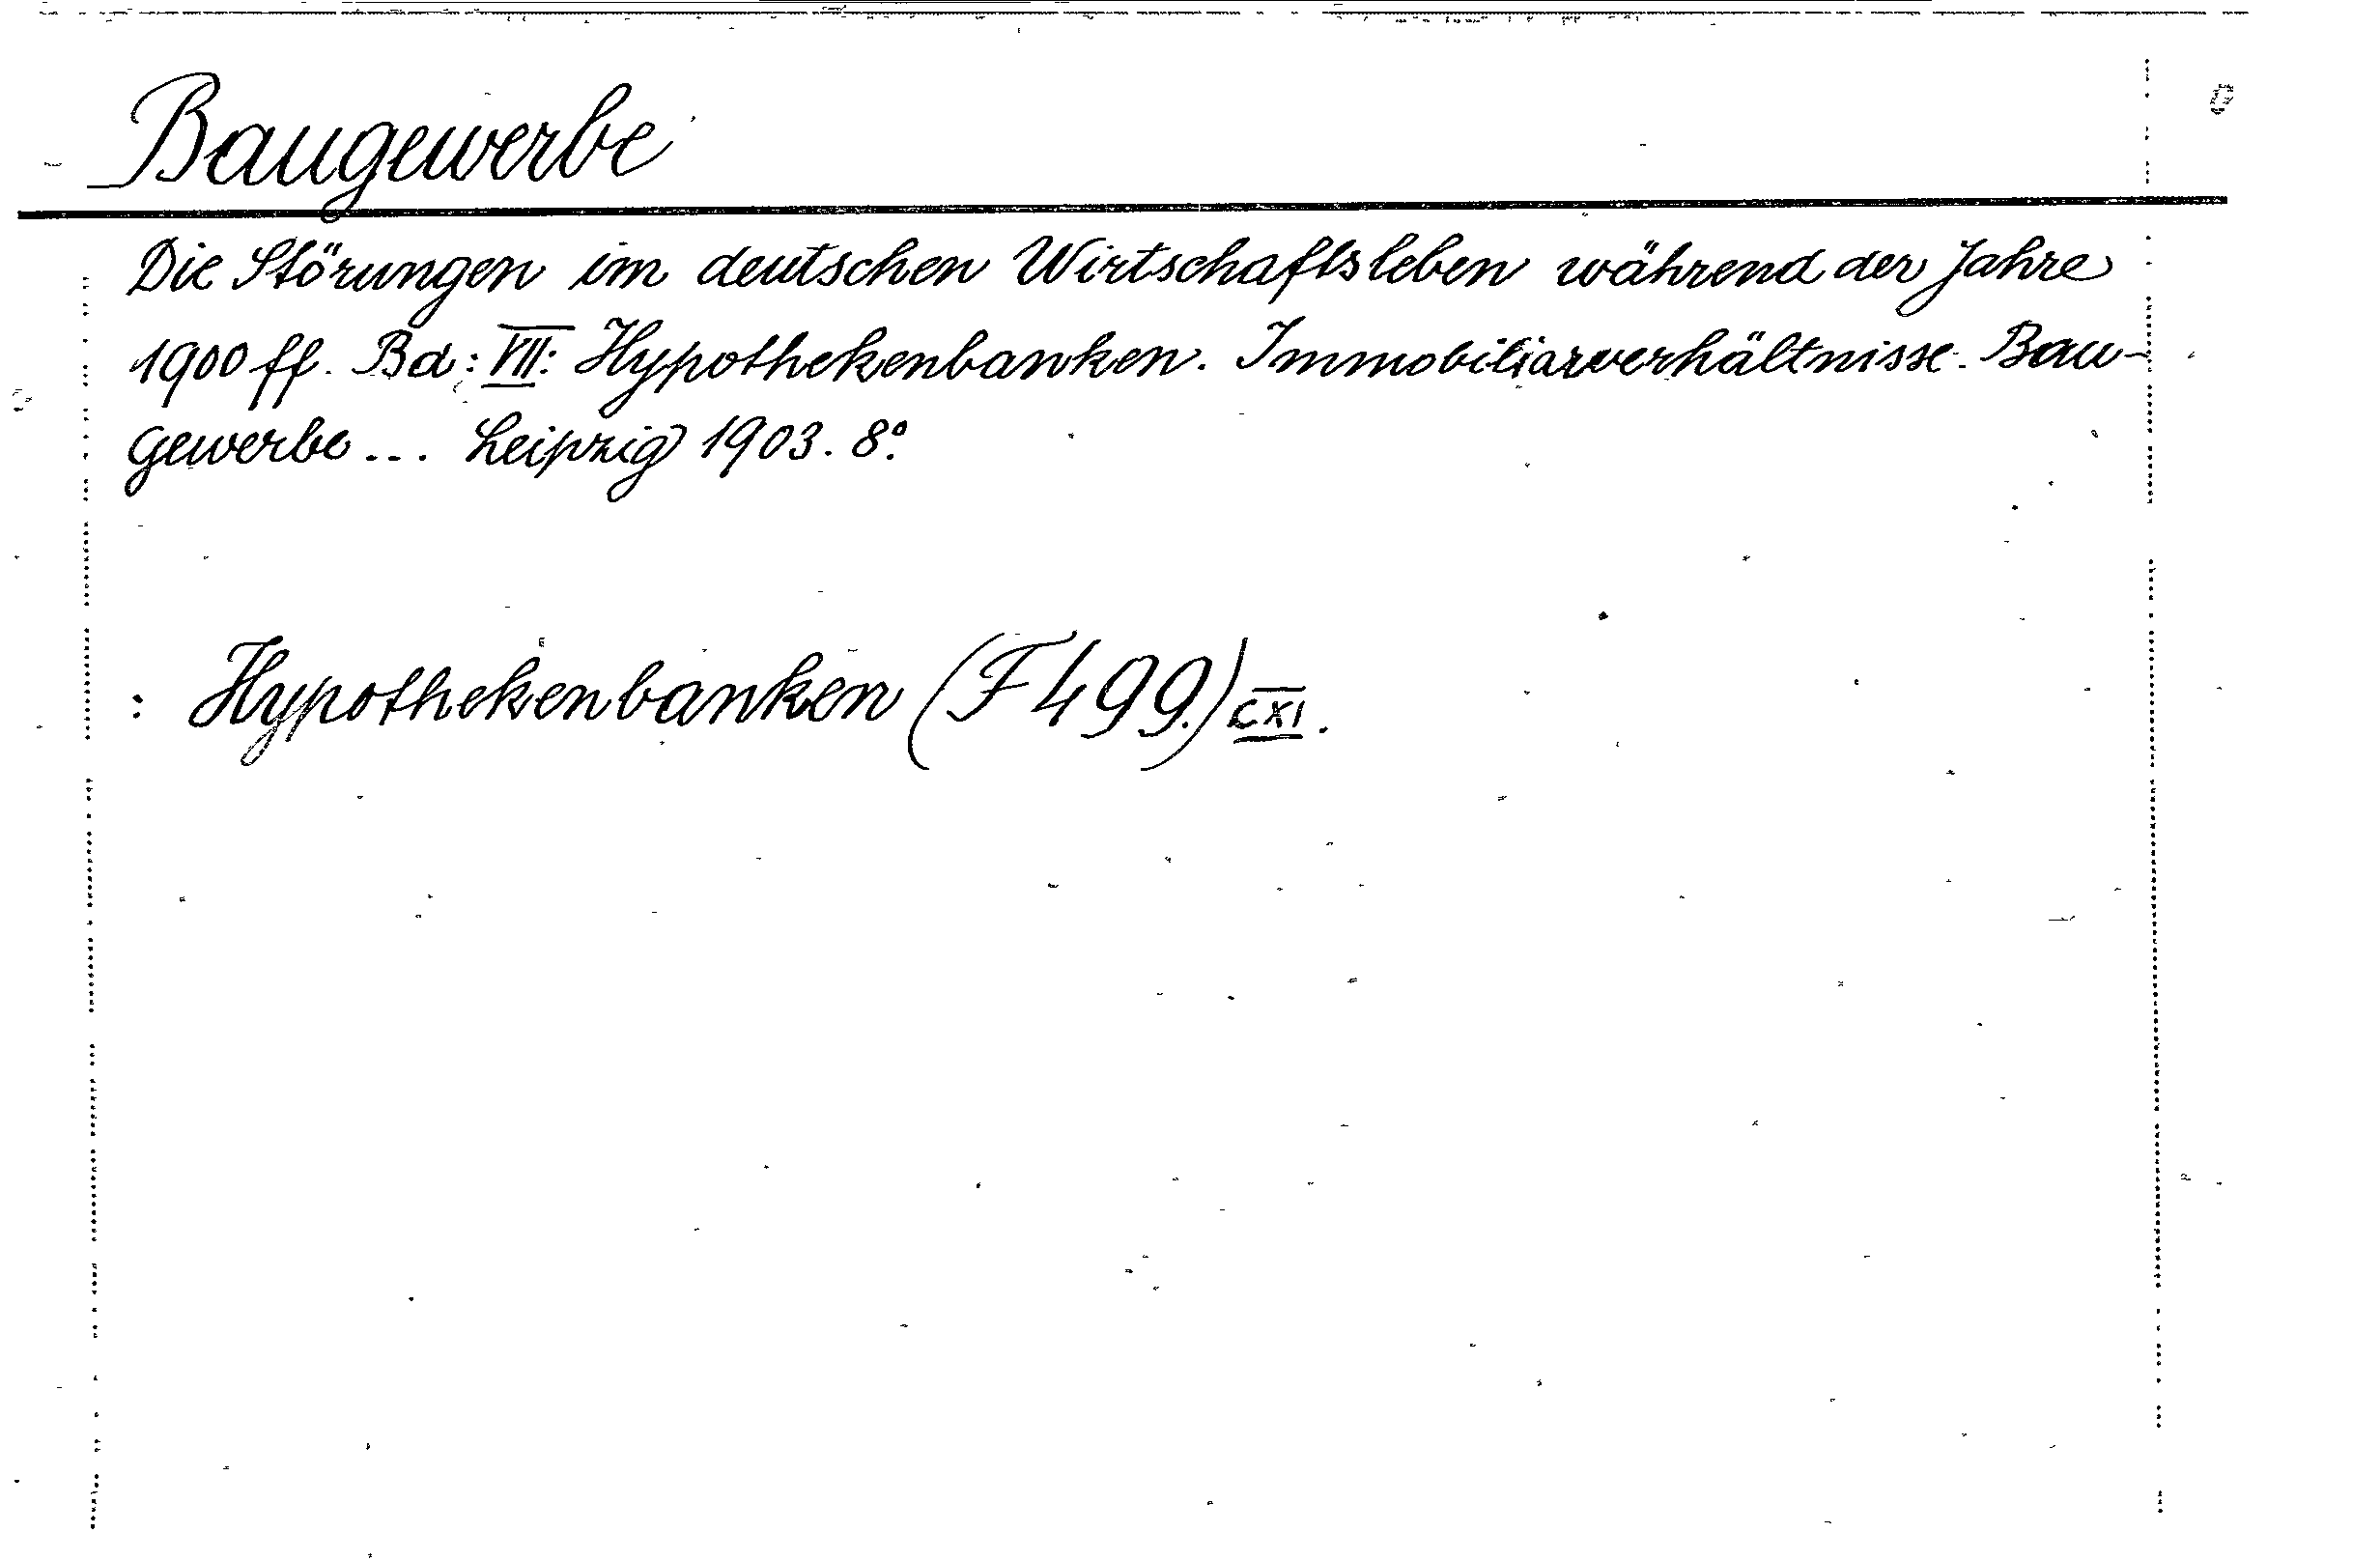 Baugewerbe
Die Störungen im deutschen Wirtschaftsleben während der Jahre
1900 ff. Bd: VII: Hypothekenbanken. Immobiliarverhältnisse. Bau-
gewerbe... Leipzig 1903. 8°.
: Hypothekenbanken (F 499.) CXI.